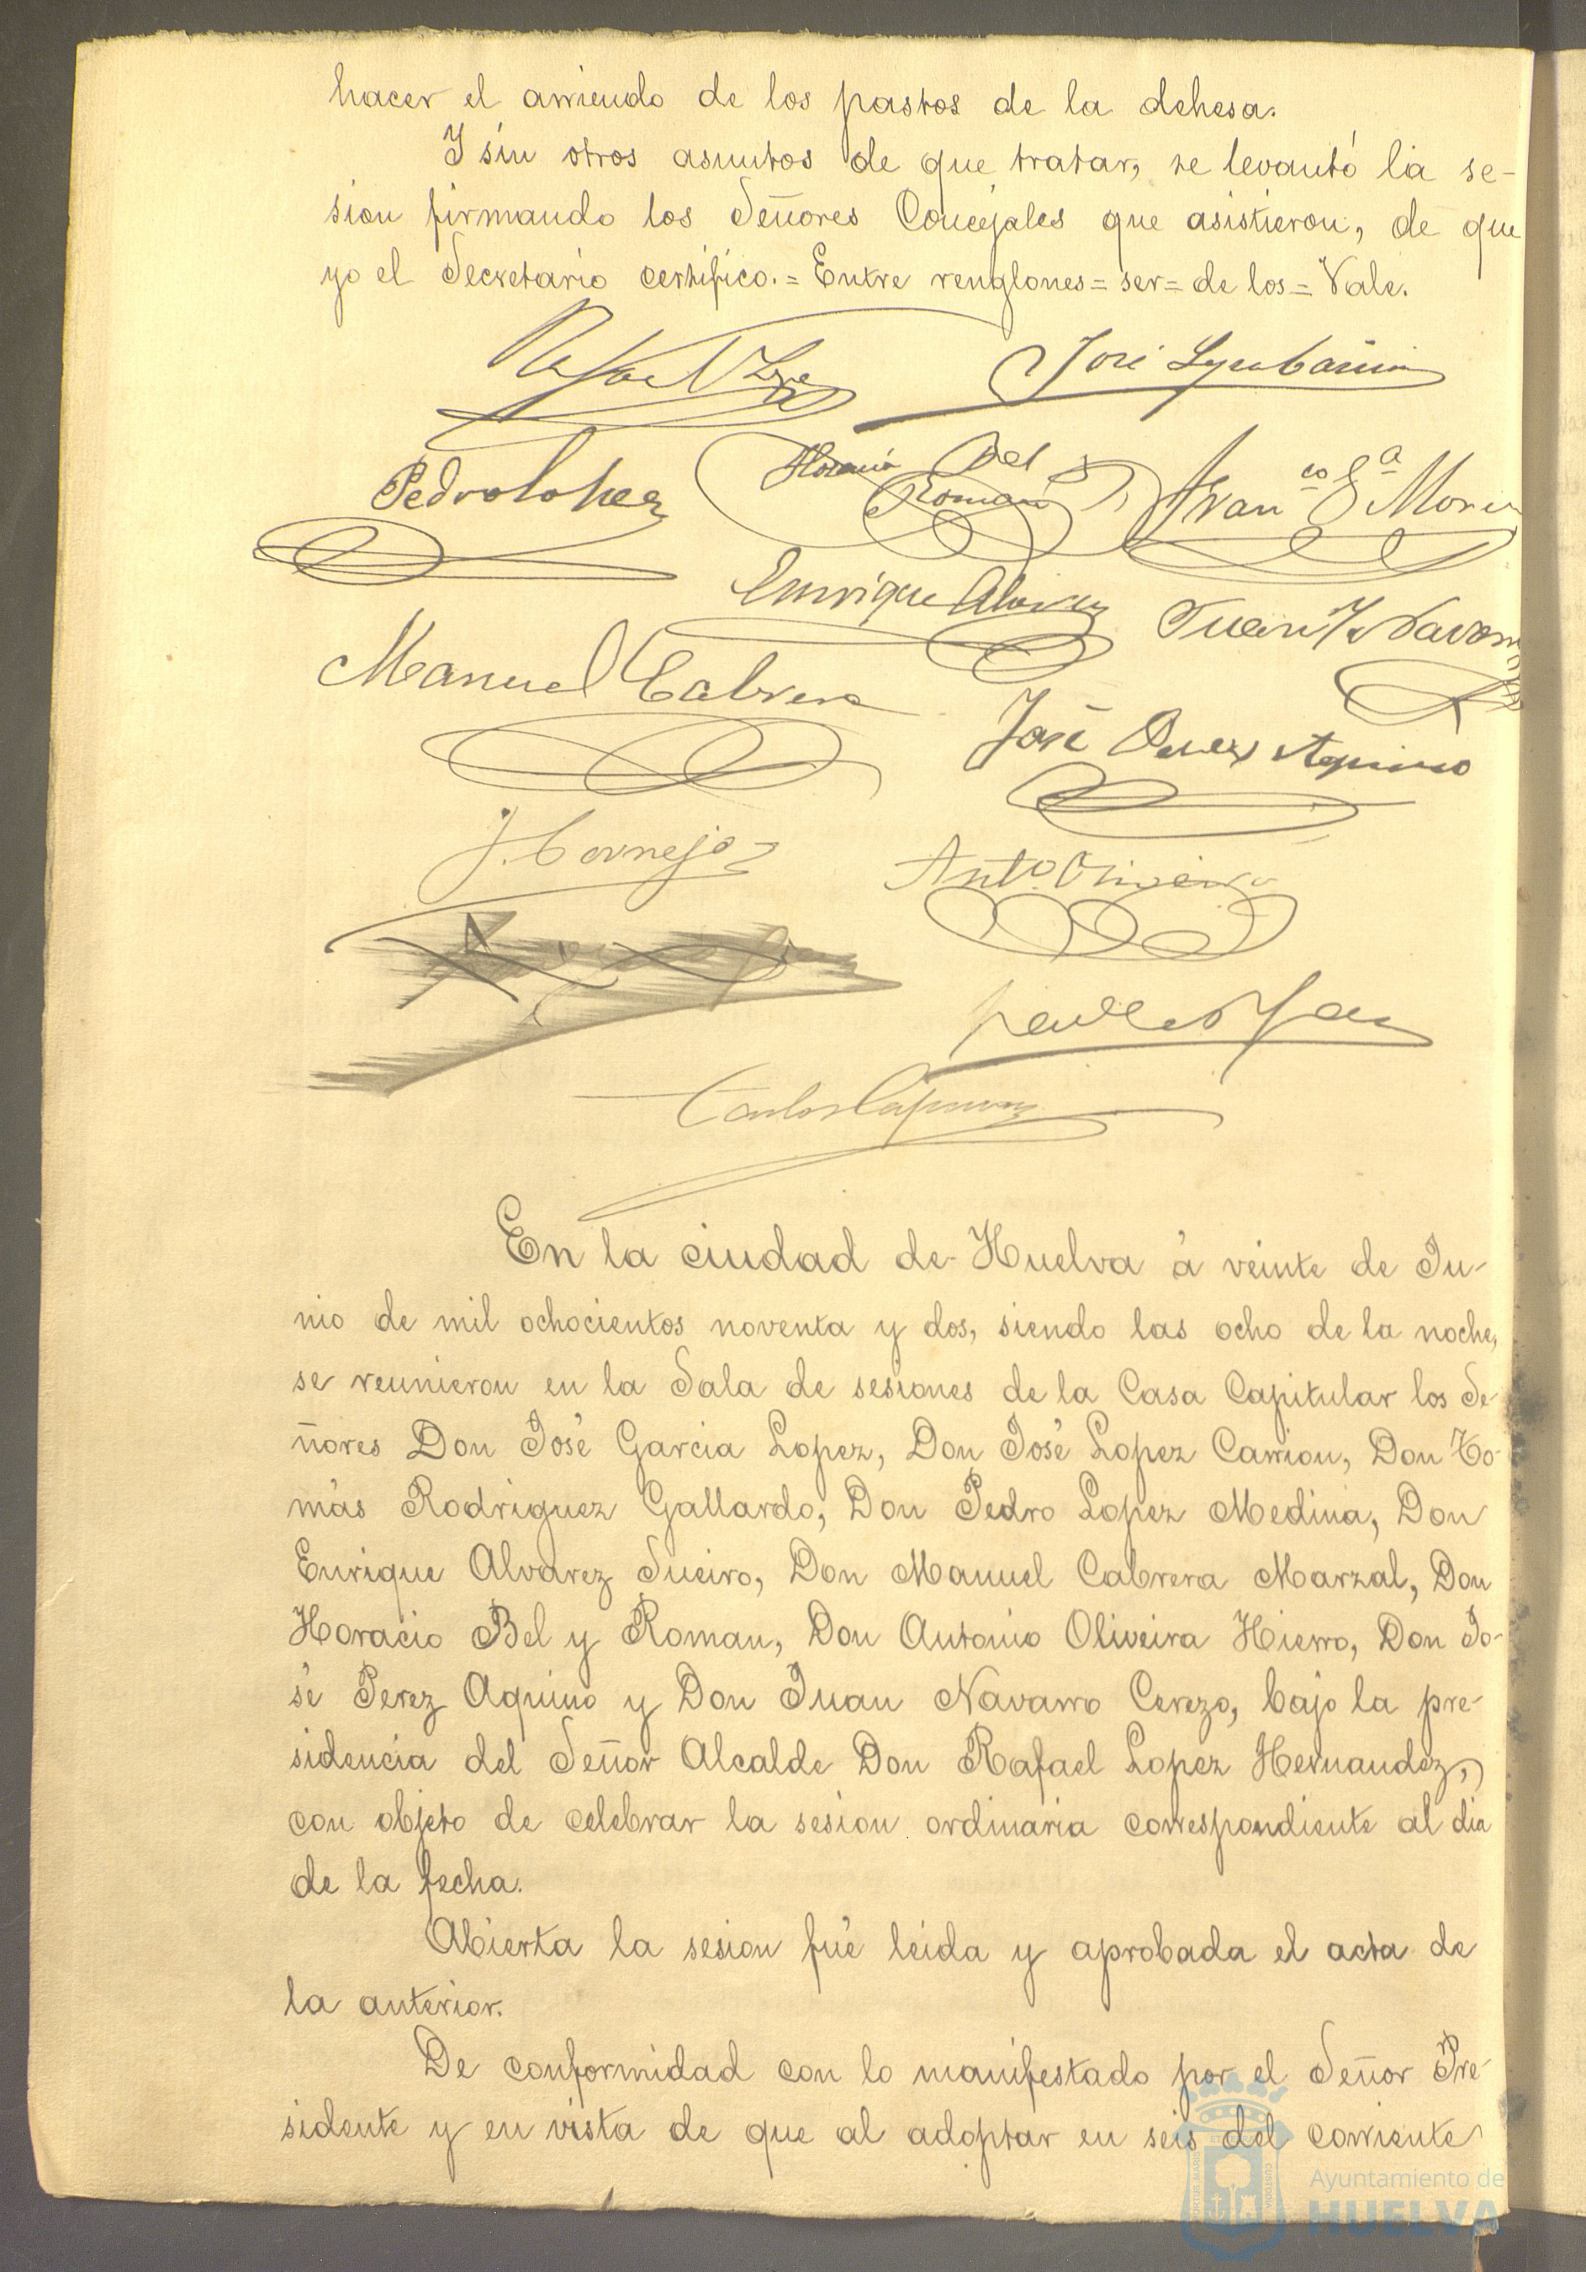 hacer el arriendo de los pastos de la dehesa.
Y sin otros asuntos de que tratar, se levantó la se-
sion firmando los Señores Concejales que asistieron, de que
yo el Secretario certifico.= Entre renglones= ser= de los= Vale.
Rafael Lopez
José Lopez Carrion
Pedro Lopez
Horacio Bel
Roman
Franco
Enrique Alvarez
Juan Navarro
Manuel Cabrera
José Perez Aquino
J. Cornejo
Anto Oliveira
Carlos
En la ciudad de Huelva á veinte de Ju-
nio de mil ochocientos noventa y dos, siendo las ocho de la noche,
se reunieron en la Sala de sesiones de la Casa Capitular los Se-
ñores Don José Garcia Lopez, Don José Lopez Carrion, Don To-
más Rodriguez Gallardo, Don Pedro Lopez Medina, Don
Enrique Alvarez Sueiro, Don Manuel Cabrera Marzal, Don
Horacio Bel y Roman, Don Antonio Oliveira Hierro, Don Jo-
sé Perez Aquino y Don Juan Navarro Cerezo, bajo la pre-
sidencia del Señor Alcalde Don Rafael Lopez Hernandez,
con objeto de celebrar la sesion ordinaria correspondiente al dia
de la fecha.
Abierta la sesion fué leida y aprobada el acta de
la anterior.
De conformidad con lo manifestado por el Señor Pre-
sidente y en vista de que al adoptar en seis del corriente
Ayuntamiento de
HUELVA